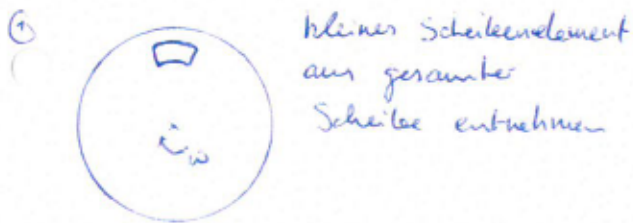 ①
kleines Scheibenelement
aus gesamter
Scheibe entnehmen
ω